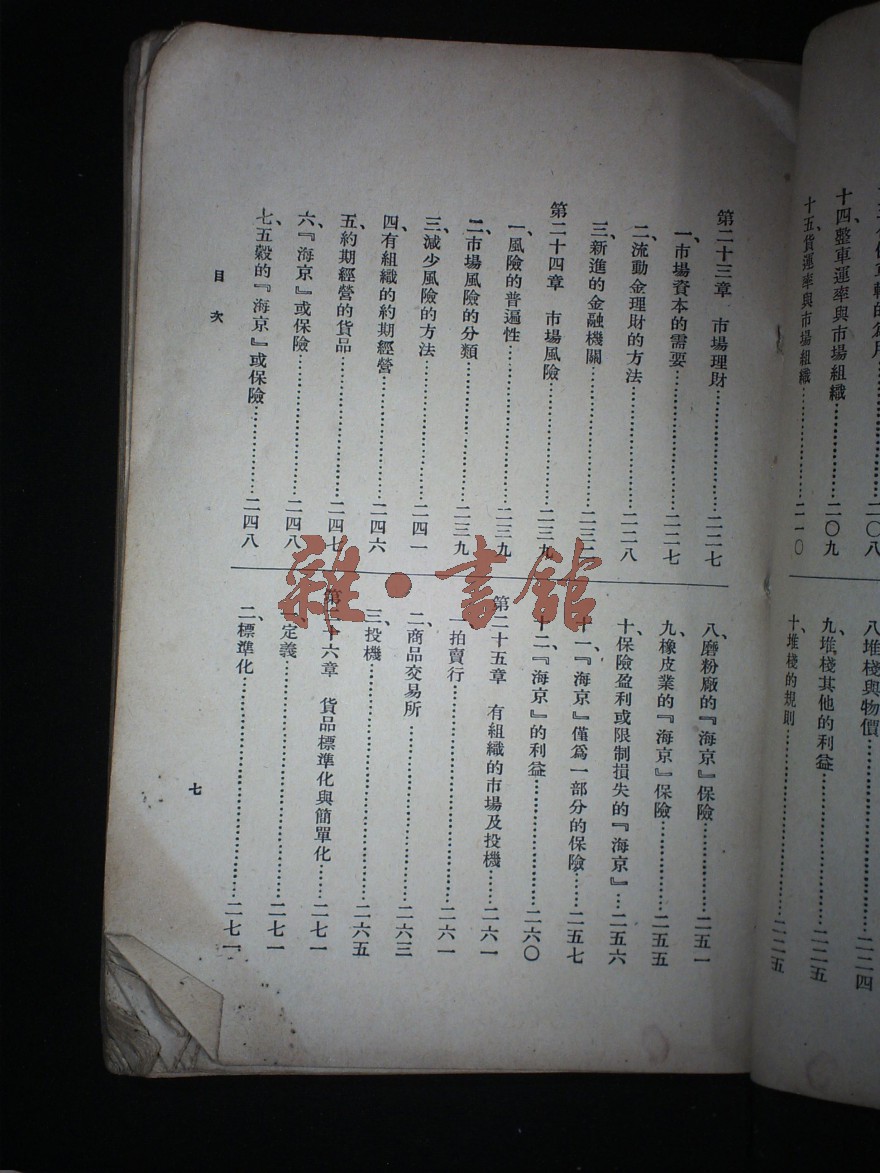 十四、整車運率與市場組織……二〇九
十五、貨運率與市場組織……二一〇
八、堆棧與物價……二二四
九、堆棧其他的利益……二二五
十、堆棧的規則……二二五
第二十三章 市場理財……二二七
一、市場資本的需要……二二七
二、流動金理財的方法……二二八
三、新進的金融機關……二三
第二十四章 市場風險……二三九
一、風險的普遍性……二三九
二、市場風險的分類……二三九
三、減少風險的方法……二四一
四、有組織的約期經營……二四六
五、約期經營的貨品……二四七
六、『海京』或保險……二四八
七、五穀的『海京』或保險……二四八
八、磨粉廠的『海京』保險……二五一
九、橡皮業的『海京』保險……二五五
十、保險盈利或限制損失的『海京』…二五六
十一、『海京』僅爲一部分的保險……二五七
十二、『海京』的利益……二六〇
第二十五章 有組織的市場及投機……二六一
一、拍賣行……二六一
二、商品交易所……二六三
三、投機……二六五
第二十六章 貨品標準化與簡單化……二七一
一、定義……二七一
二、標準化……二七一
目次
七
雜·書館